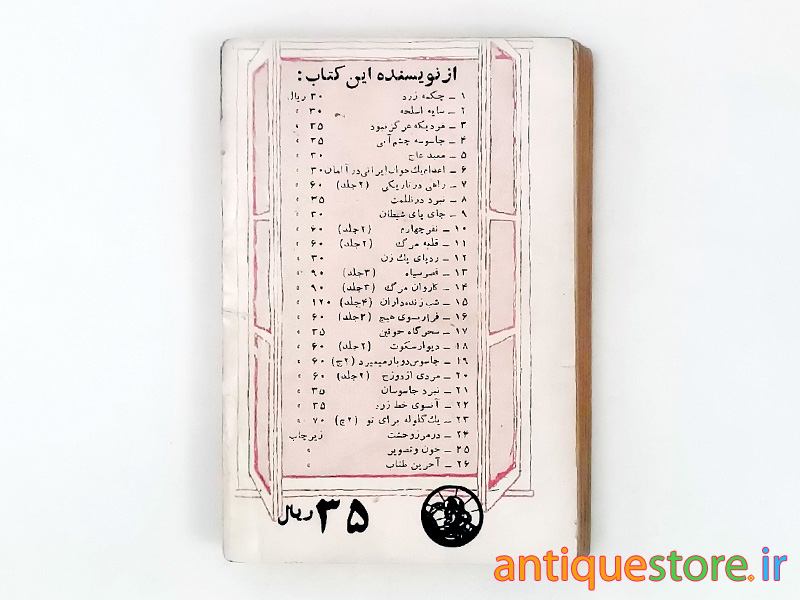 از نویسنده این کتاب:
۱ – چکمه زرد ۳۰ ریال
۲ – سایه اسلحه ۳۰ »
۳ – مردیکه هرگز نبود ۳۵ »
۴ – جاسوسه چشم آبی ۳۵ »
۵ – معبد عاج ۳۰ »
۶ – اعدام یک جوان ایرانی در آلمان ۳۰ »
۷ – راهی در تاریکی (۲ جلد) ۶۰ »
۸ – نبرد در ظلمت ۳۵ »
۹ – جای پای شیطان ۳۰ »
۱۰ – نفر چهارم (۲ جلد) ۶۰ »
۱۱ – قلعه مرگ (۲ جلد) ۶۰ »
۱۲ – ردپای یک زن ۳۰ »
۱۳ – قصر سیاه (۳ جلد) ۹۰ »
۱۴ – کاروان مرگ (۳ جلد) ۹۰ »
۱۵ – شب زنده داران (۴ جلد) ۱۲۰ »
۱۶ – فرار بسوی هیچ (۲ جلد) ۶۰ »
۱۷ – سحرگاه خونین ۳۵ »
۱۸ – دیوار سکوت (۲ جلد) ۶۰ »
۱۹ – جاسوس دوبار میمیرد (۲ ج) ۶۰ »
۲۰ – مردی از دوزخ (۲ جلد) ۶۰ »
۲۱ – نبرد جاسوسان ۳۵ »
۲۲ – آنسوی خط زرد ۳۵ »
۲۳ – یک گلوله برای تو (۲ ج) ۷۰ »
۲۴ – در مرز وحشت زیر چاپ
۲۵ – خون و تصویر »
۲۶ – آخرین طناب »
۳۵ ریال
antiquestore.ir